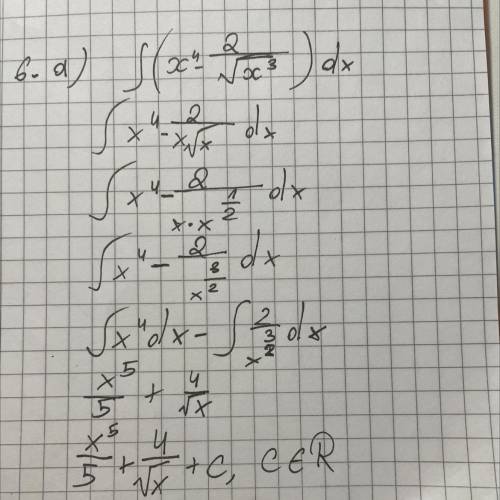 6. a) ∫(x⁴ - 2/√x³) dx
∫ x⁴ - 2/(x√x) dx
∫ x⁴ - 2/(x·x^(1/2)) dx
∫ x⁴ - 2/x^(3/2) dx
∫ x⁴ dx - ∫ 2/x^(3/2) dx
x⁵/5 + 4/√x
x⁵/5 + 4/√x + C, C∈ℝ